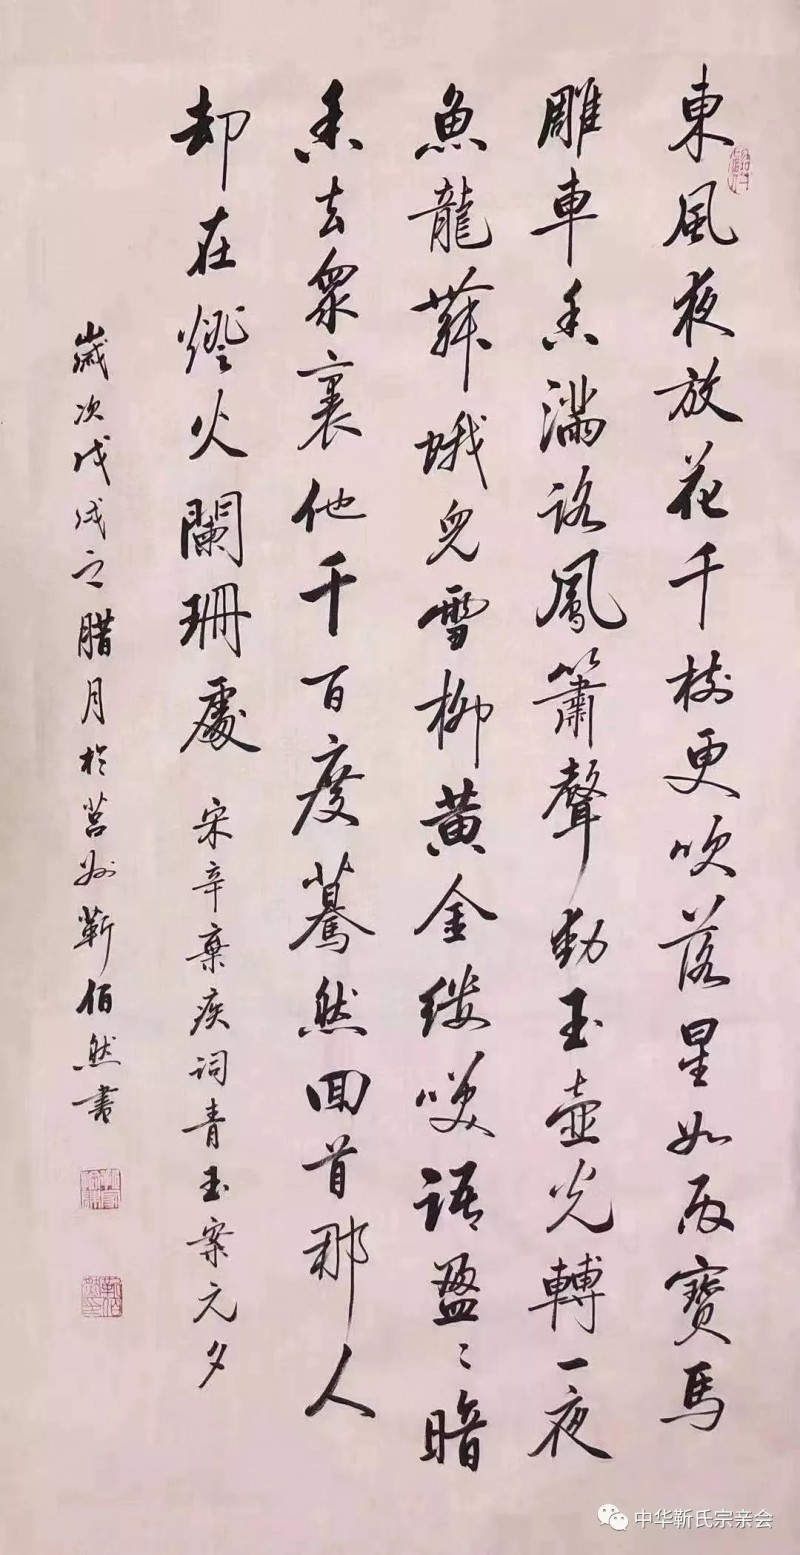 東風夜放花千樹更吹落星如雨寶馬
雕車香滿路鳳簫聲動玉壺光轉一夜
魚龍舞蛾兒雪柳黄金缕笑語盈〻暗
香去眾裏他千百度驀然回首那人
却在燈火闌珊處 宋辛棄疾詞青玉案元夕
歲次戊戌之腊月於莒州靳佰然書
中华靳氏宗亲会